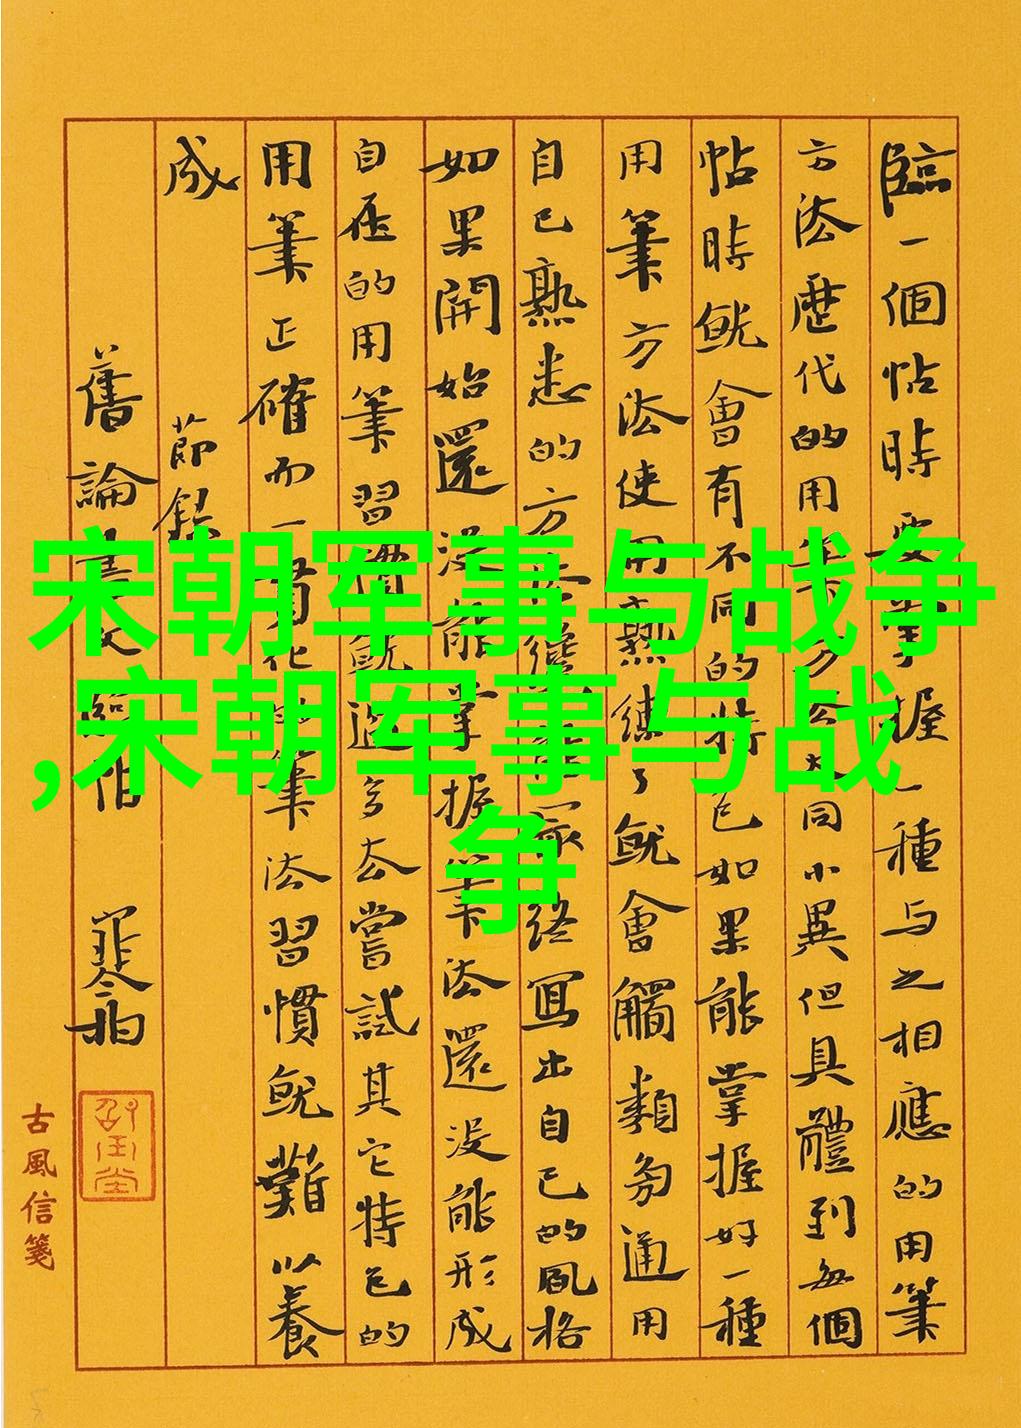 宋朝军事与战争
,宋朝军事与战
争
臨一個帖時要掌握一種与之相應的用筆
方法歷代的用筆方法大同小異但具體到每個
帖時就會有不同的特色如果能掌握好一種
用筆方法使用熟練了就會觸類旁通用
自己熟悉的方法寫出自己的風格
如果開始還沒能掌握筆法還沒能形成
自在的用筆習慣就過多去嘗試其它特色的
用筆正確而一筆法習慣就難以養
成 節錄
舊論書文臨作
古風信箋